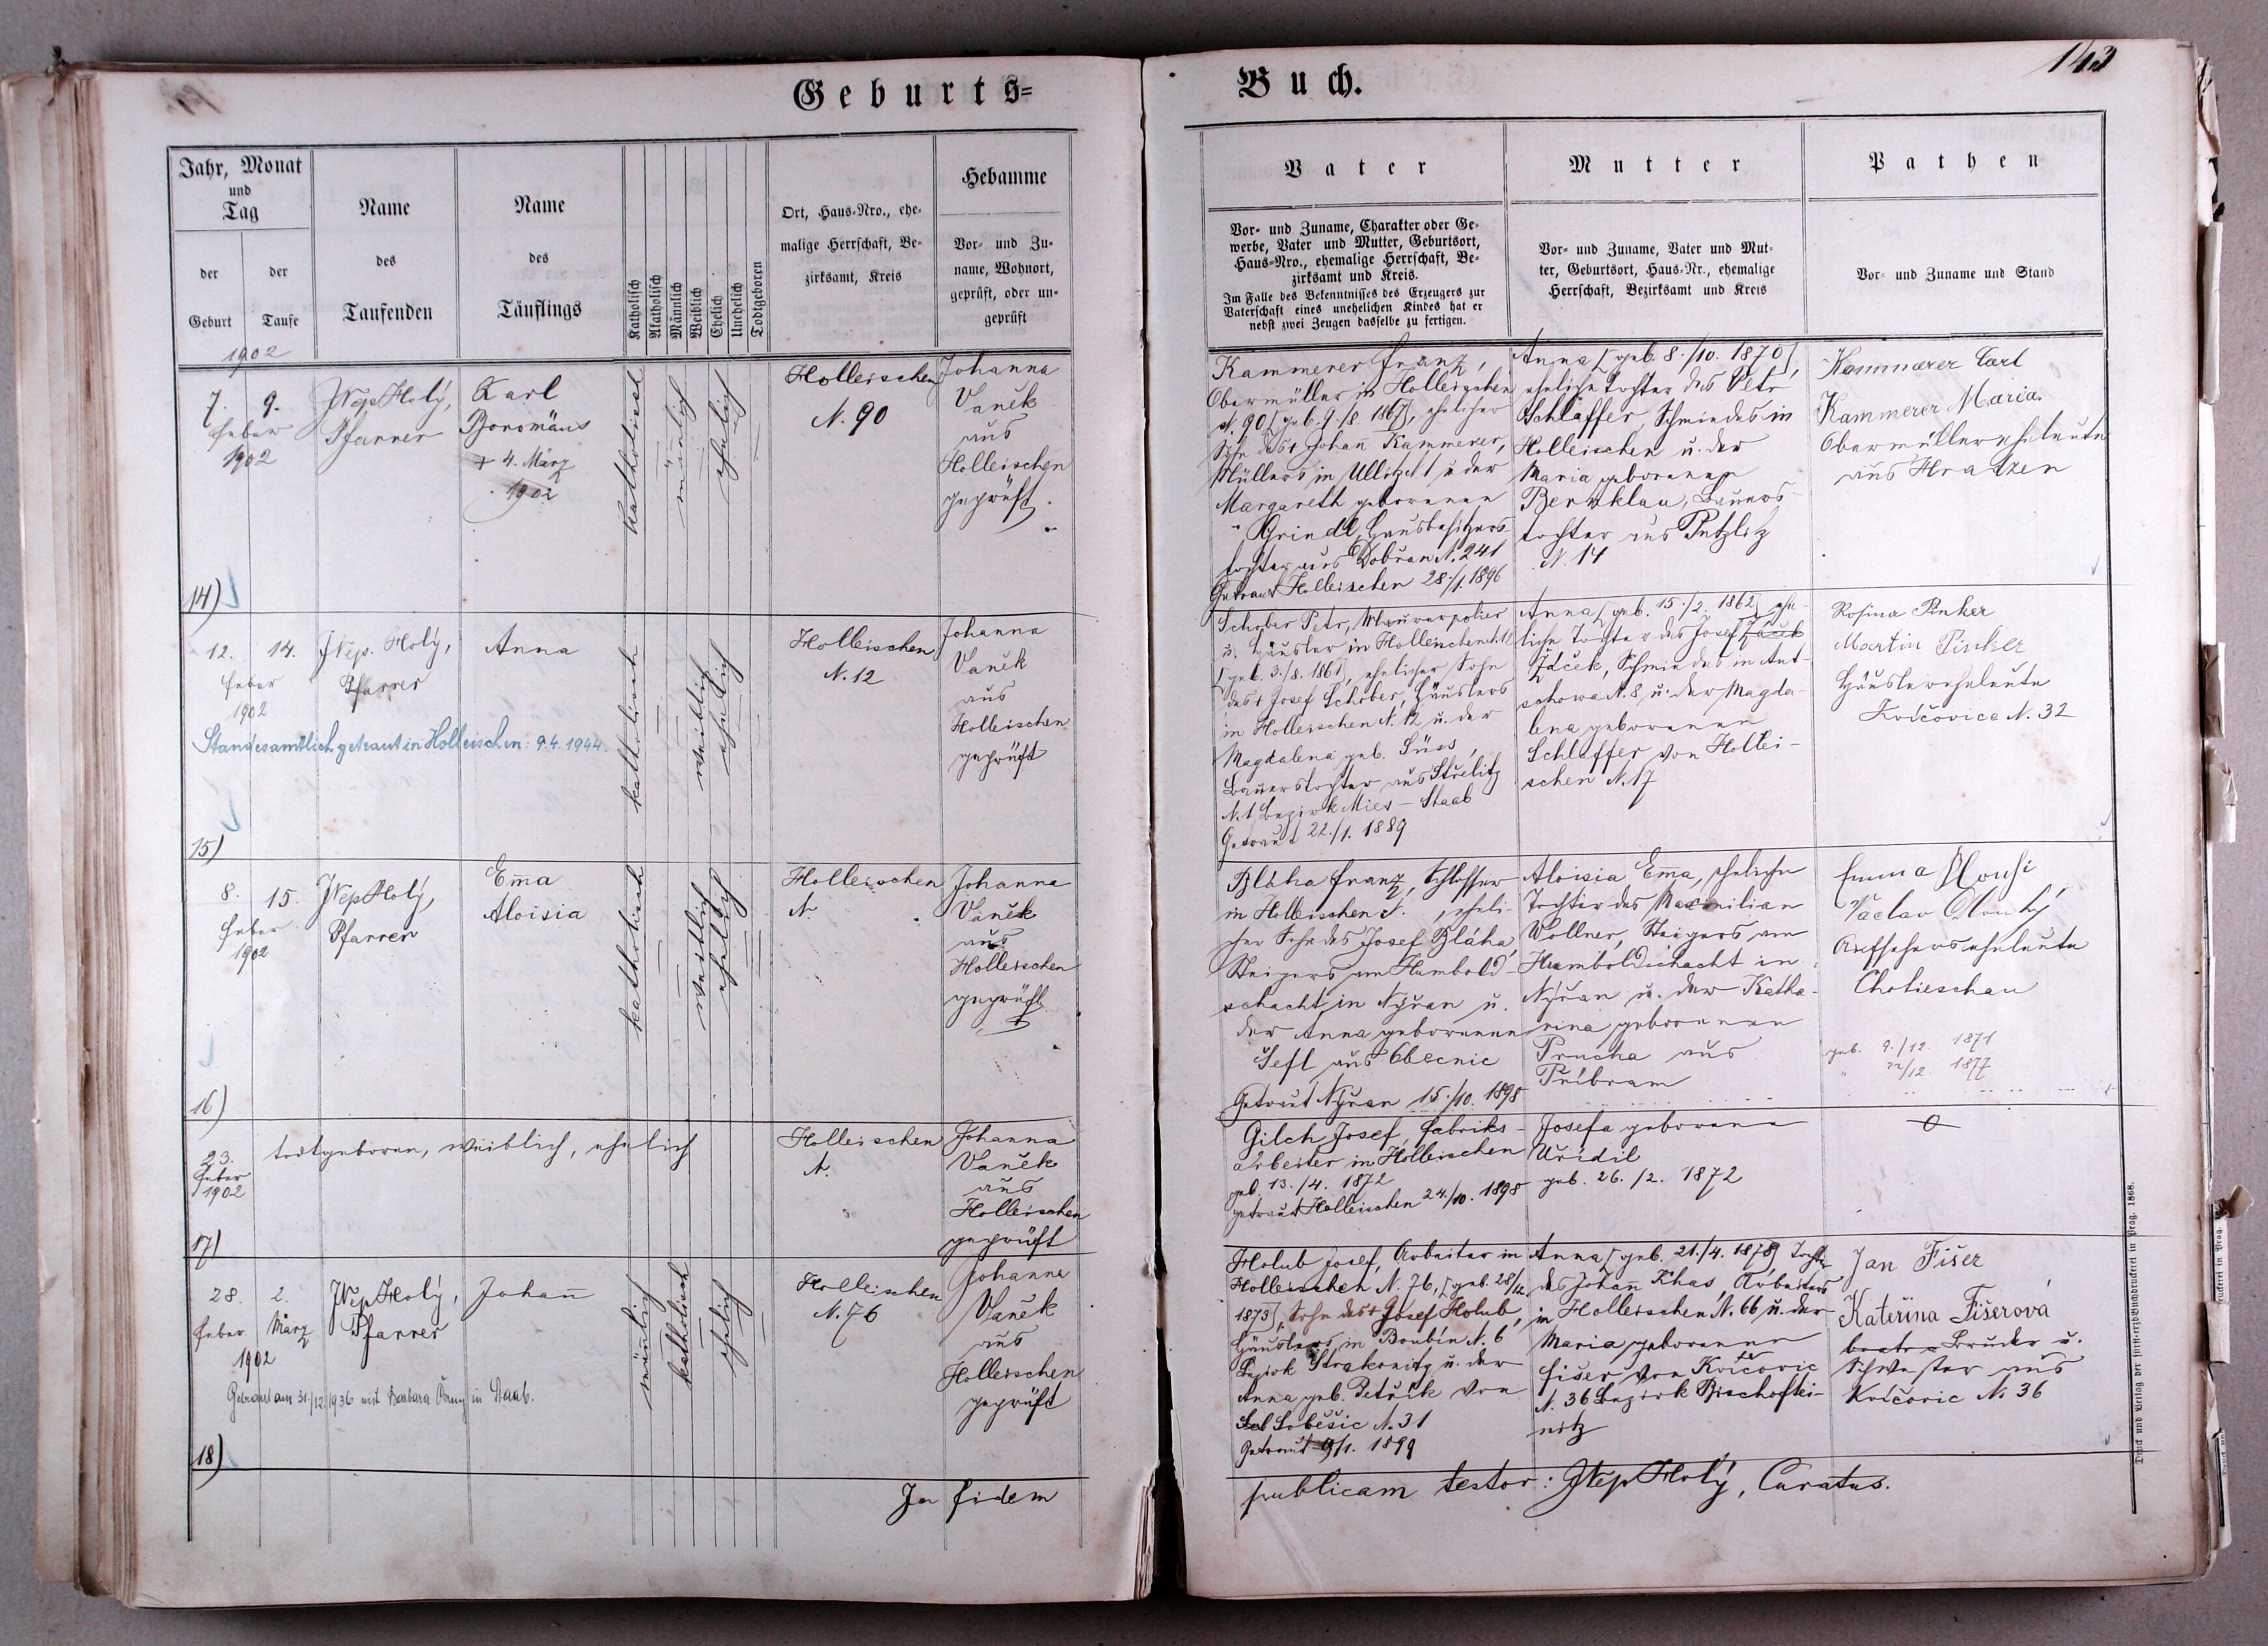 143
Geburts=
Buch.
Jahr, Monat
und
Tag
der
Geburt
der
Taufe
Name
des
Taufenden
Name
des
Täuflings
Katholisch
Akatholisch
Männlich
Weiblich
Ehelich
Unehelich
Todtgeboren
Ort, Haus-Nro., ehe-
malige Herrschaft, Be-
zirksamt, Kreis
Hebamme
Vor- und Zu-
name, Wohnort,
geprüft, oder un-
geprüft
Vater
Vor- und Zuname, Charakter oder Ge-
werbe, Vater und Mutter, Geburtsort,
Haus-Nro., ehemalige Herrschaft, Be-
zirksamt und Kreis.
Im Falle des Bekenntnisses des Erzeugers zur
Vaterschaft eines unehelichen Kindes hat er
nebst zwei Zeugen dasselbe zu fertigen.
Mutter
Vor- und Zuname, Vater und Mut-
ter, Geburtsort, Haus-Nr., ehemalige
Herrschaft, Bezirksamt und Kreis
Pathen
Vor- und Zuname und Stand
1902
7. 9.
Feber
1902
JNep Holý,
Pfarrer
Karl
Boromäus
+ 4. März
1902
katholisch
mänlich
ehelich
Holleischen
N. 90
Johanna
Vaněk
aus
Holleischen
geprüft.
Kammerer Franz,
Obermüller in Holleischen
N. 90 [geb. 9./8. 1867], ehelicher
Sohn des + Johan̄ Kammerer,
Müllers in Ullitz N. 1 u. der
Margareth geborenen
Grindl, Hausbesitzers-
tochter aus Dobřan N. 241
Getraut Holleischen 28./1. 1896
Anna [geb. 8./10. 1870],
eheliche Tochter des Petr
Schlaffer, Schmiedes in
Holleischen u. der
Maria geborenen
Bernklau, Bauers-
tochter aus Putzlitz
N. 14
Kammerer Carl
Kammerer Maria.
Obermüllerseheleute
aus Hradzen
14)
12. 14.
Feber
1902
JNep. Holý,
Pfarrer
Anna
katholisch
weiblich
ehelich
Holleischen
N. 12
Johanna
Vaněk
aus
Holleischen
geprüft
Standesamtlich getraut in Holleischen: 9.4.1944.
Schober Petr, Maurerpolier
u. Häusler in Holleischen N. 12
[geb. 3./8. 1861], ehelicher Sohn
des + Josef Schober, Häuslers
in Holleischen N. 12 u. der
Magdalena geb. Süss,
Bauerstochter aus Střelitz
N. 1 Bezirk Mies – Staab
Getraut 22./1. 1889
Anna [geb. 15./2. 1862], ehe-
liche Tochter des Josef
Žáček, Schmiedes in Aut-
schowa N. 8 u. der Magda-
lena geborenen
Schlaffer von Hollei-
schen N. 17
Rosina Pinker
Martin Pinker
Häuslerseheleute
Kvíčovice N. 32
15)
8. 15.
Feber
1902
JNep Holý,
Pfarrer
Em̄a
Aloisia
katholisch
weiblich
ehelich
Holleischen
N.
Johanna
Vaněk
aus
Holleischen
geprüft
Bláha Franz, Schlosser
in Holleischen N. , eheli-
cher Sohn des Josef Bláha,
Steigers am Humbold-
schacht in Nýřan u.
der Anna geborenen
Šefl aus Obecnic
Getraut Nýřan 15./10. 1898
Aloisia Em̄a, eheliche
Tochter des Maximilian
Wollner, Steigers am
Humboldschacht in
Nýřan u. der Katha-
rina geborenen
Prucha aus
Příbram
Emma Dlouhi
Václav Dlouhý
Aufseherseheleute
Chotieschau
geb. 9./12. 1871
" 22/12. 1877
16)
23.
Feber
1902
todtgeboren, weiblich, ehelich
Holleischen
N.
Johanna
Vaněk
aus
Holleischen
geprüft
Gilch Josef, Fabriks-
arbeiter in Holleischen
geb. 13./4. 1872
getraut Holleischen 24./10. 1898
Josefa geborene
Uřídil
geb. 26./2. 1872
17)
28. 2.
Feber März
1902
JNep Holý,
Pfarrer
Johan̄
män̄lich
katholisch
ehelich
Holleischen
N. 76
Johanna
Vaněk
aus
Holleischen
geprüft
Getraut am 31/12 1936 mit Barbara in Staab.
Holub Josef, Arbeiter in
Holleischen N. 76, [geb. 28/12.
1873], Sohn des + Josef Holub,
Häuslers in Boubín N. 6
Bezirk Strakonitz u. der
Anna geb. Petřík von
Soběšic N. 31
Getraut 9/1. 1899
Anna [geb. 21./4. 1878] Tochter
des Johan̄ Khas, Arbeiters
in Holleischen N. 66 u. der
Maria geborenen
Fišer von Kvíčovic
N. 36 Bezirk Bischoftei-
nitz
Jan Fišer
Kateřina Fišerová
Bruder u.
Schwester aus
Kvíčovic N. 36
18)
In fidem
publicam testor: JNep Holý, Curatus.
Druck und Verlag der fürst-erzb. Buchdruckerei in Prag. 1868.